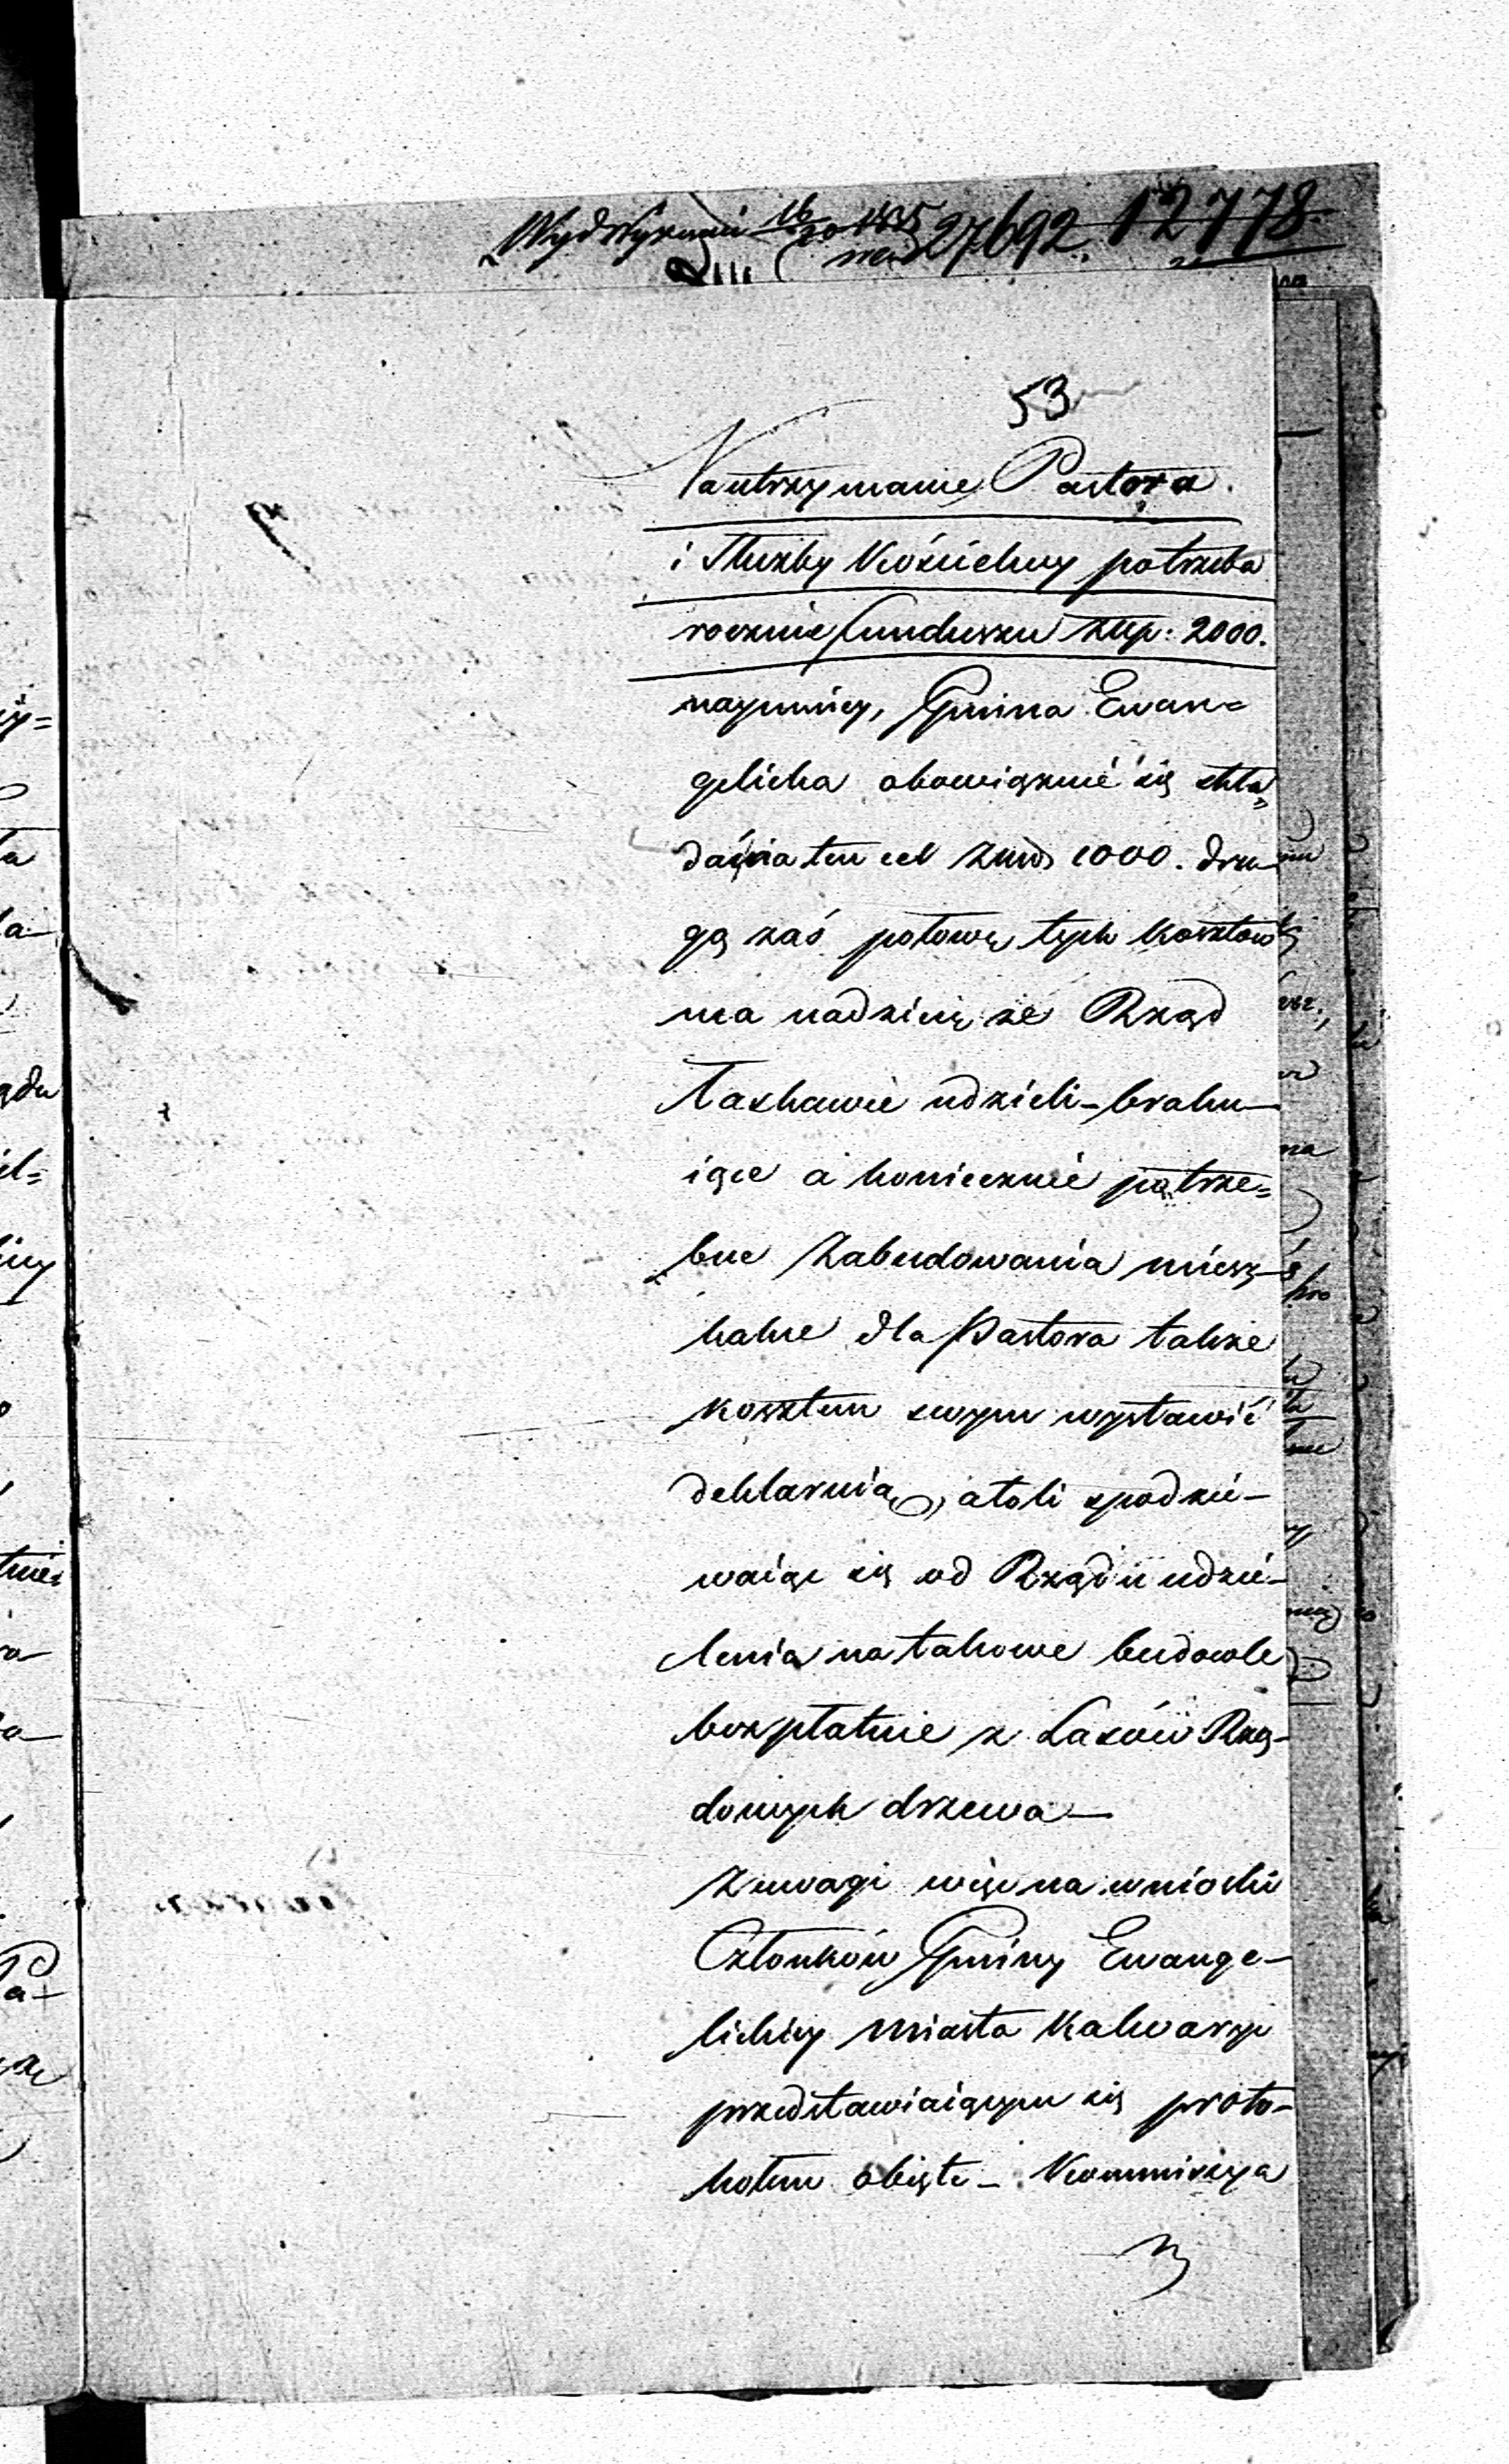 27692. 12778.
53
Na utrzymanie Pastora
i Służby Kościelney potrzeba
rocznie funduszu złłp: 2000.
naymniey, Gmina Ewan=
gelicka obowiązuie się skła=
dać na ten cel 1000. dru-
gą zaś połowę tych kosztów
ma nadzieię że Rząd
Łaskawie udzieli - braku-
iące a koniecznie potrze=
bne Zabudowania miesz-
kalne dla Pastora także
kosztem swym wystawić
deklaruią, atoli spodzie-
waiąc się od Rządu udzie-
lenia na takowe budowle
bezpłatnie z Lasów Rzą-
dowych drzewa —
Z uwagi więc na wnioski
Członków Gminy Ewange-
lickiey Miasta Kalwaryi
przedstawiaiącym się proto-
kołem obięte - Kommissya